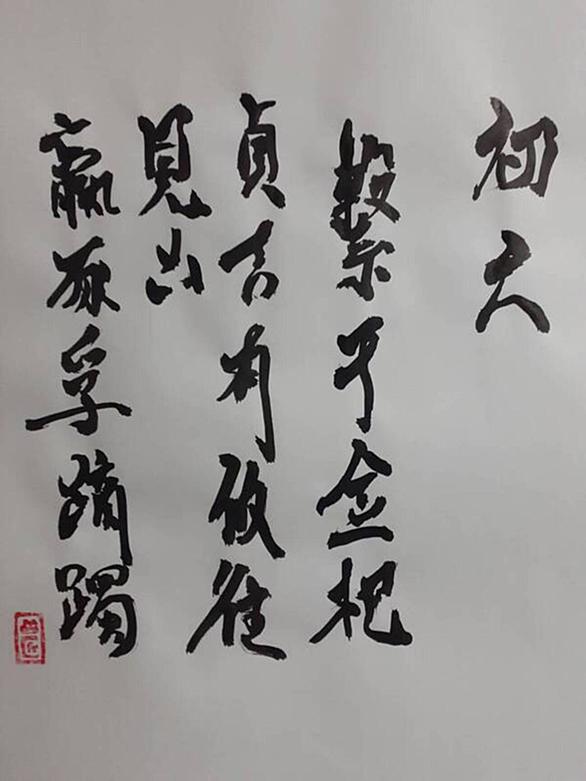 初六
繫于金柅
貞吉有攸往
見凶
羸豕孚蹢躅